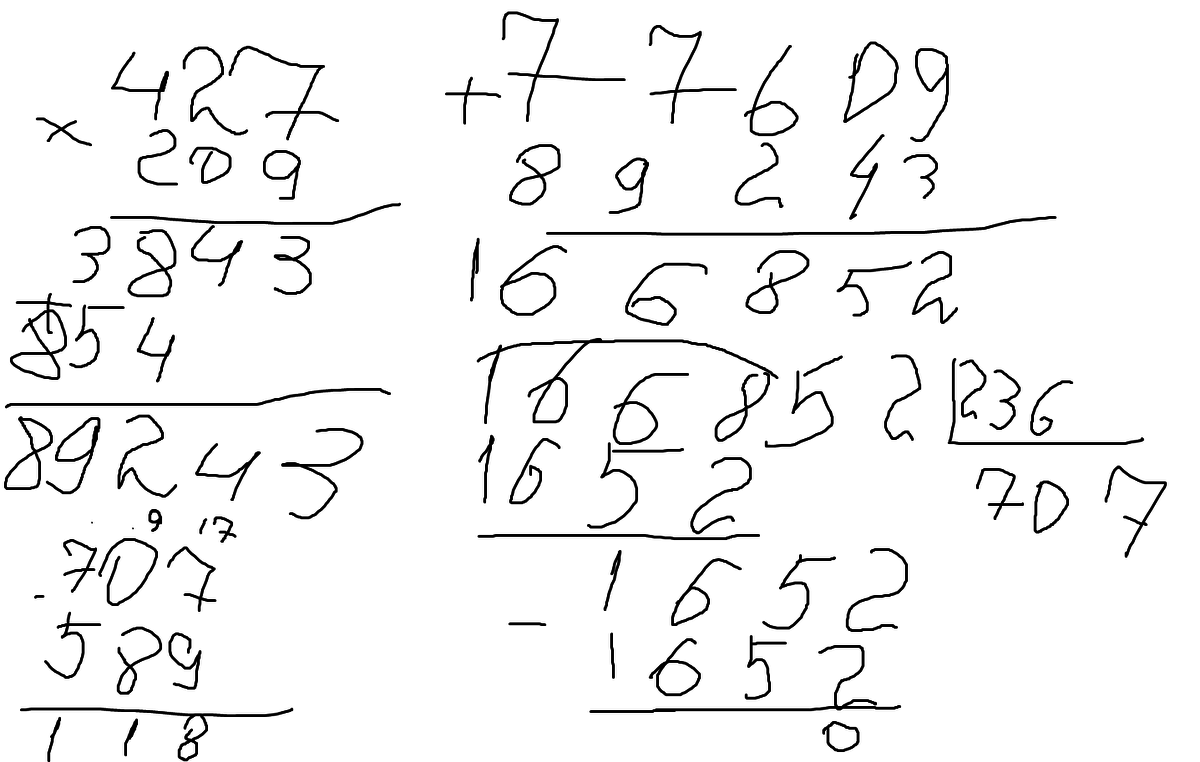 427
× 209
3843
854
89243
9 17
- 707
589
118
+ 77609
89243
166852
166852 | 236
1652 707
- 1652
1652
0